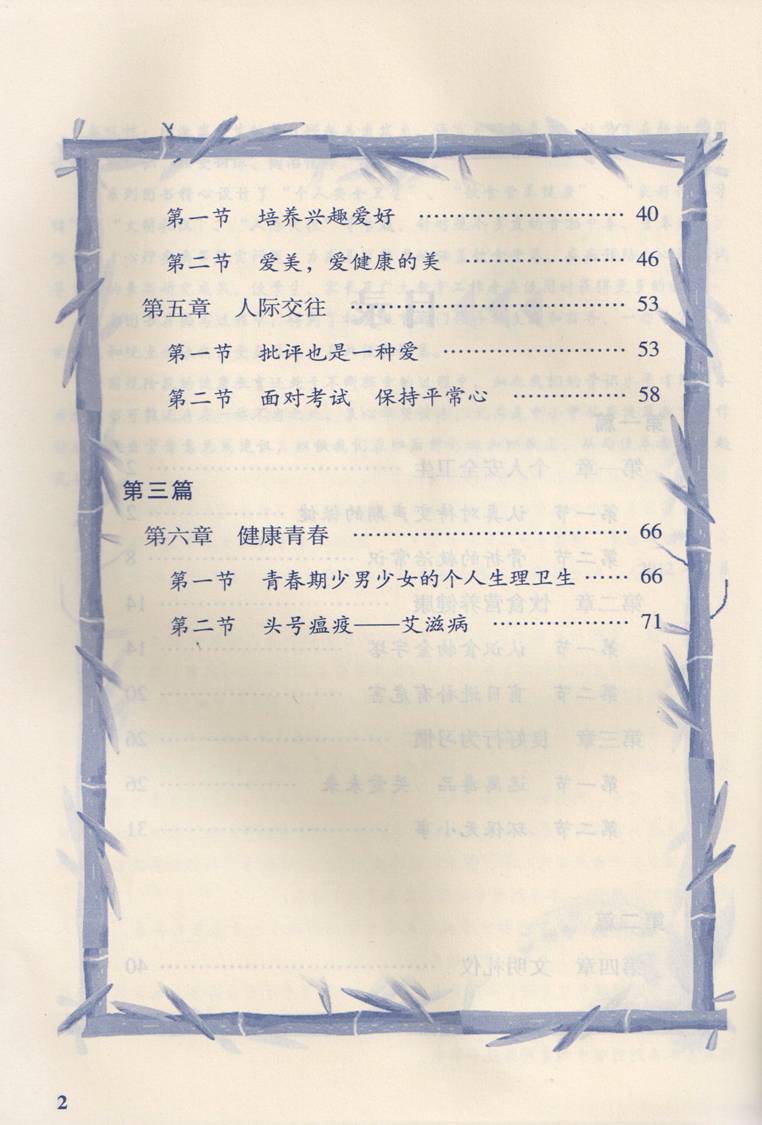 第一节 培养兴趣爱好 …………………… 40
第二节 爱美，爱健康的美 ………………… 46
第五章 人际交往 …………………………… 53
第一节 批评也是一种爱 ………………… 53
第二节 面对考试 保持平常心 ………… 58
第三篇
第六章 健康青春 …………………………… 66
第一节 青春期少男少女的个人生理卫生 …… 66
第二节 头号瘟疫——艾滋病 ……………… 71
2